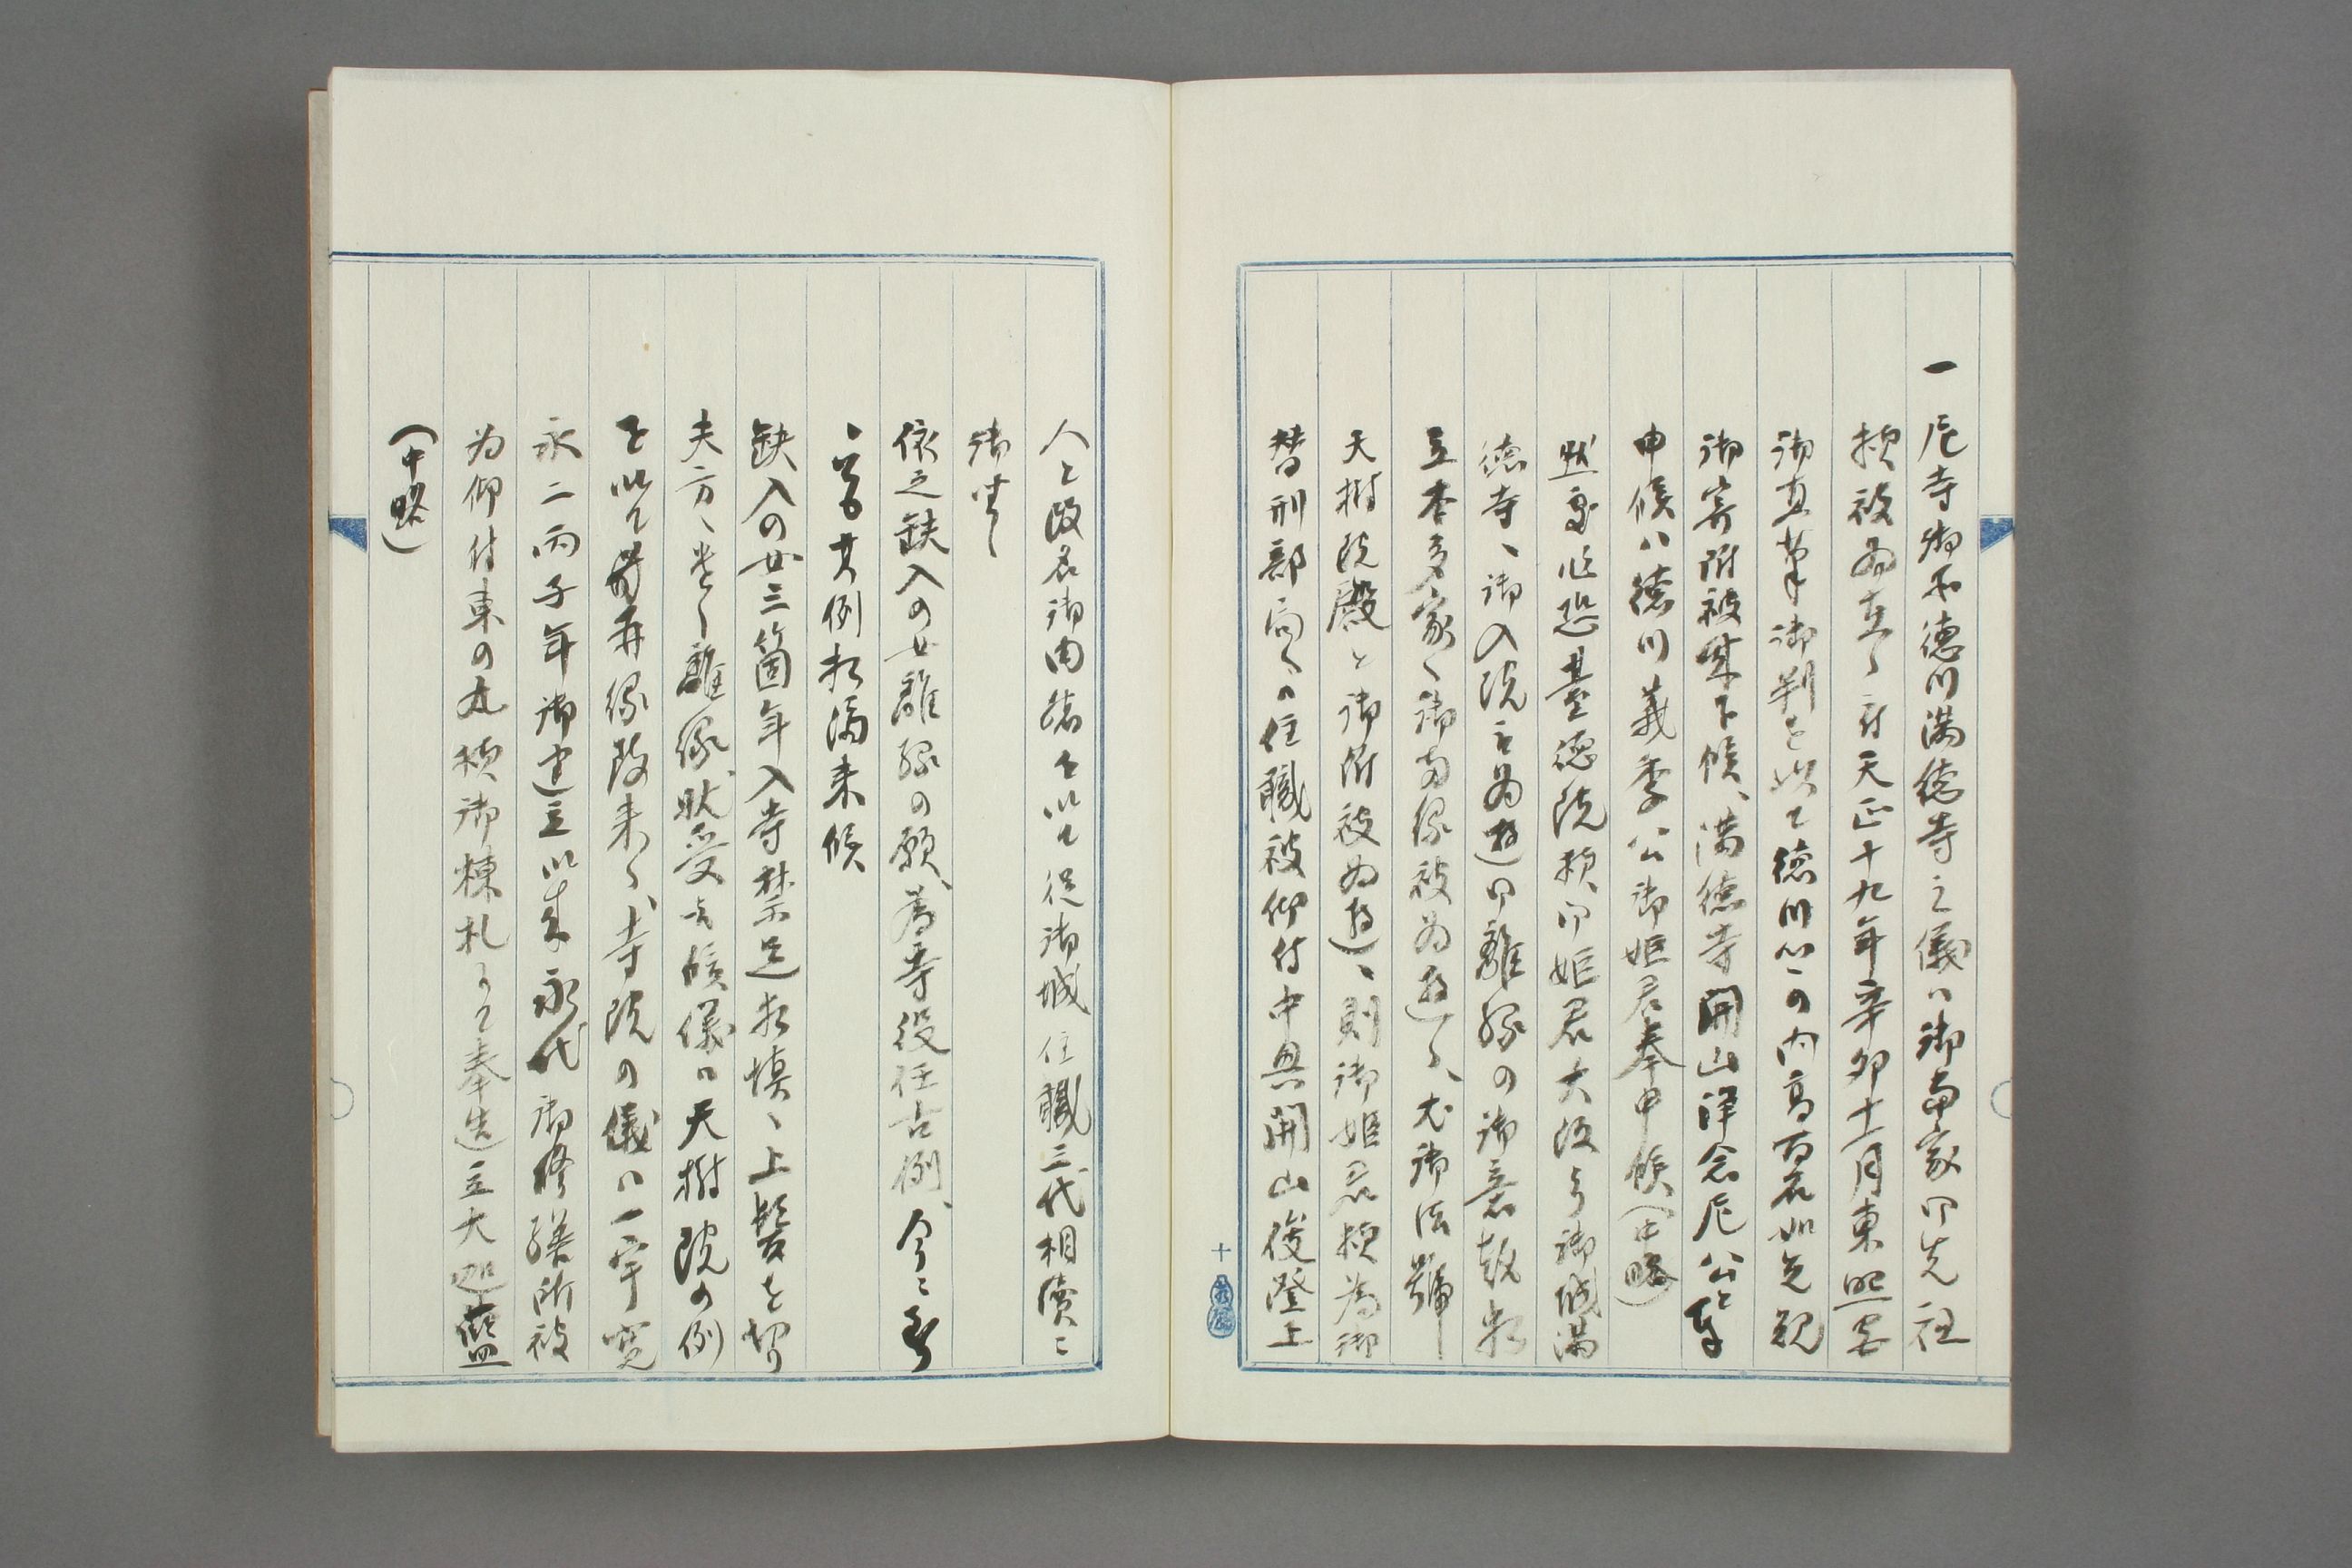 一 尼寺御所徳川満徳寺之儀ハ御当家御先祖
様被為在候、付天正十九年辛卯十一月東照宮
御直筆御判を以て徳川郷の内高百石如先規
御寄附被成下候、満徳寺開山浄念尼公と
申候ハ徳川義季公御姫君奉申候(中略)
然処乍恐臺徳院様御姫君大坂ゟ御城満
徳寺へ御入院被為遊御離縁の御意趣相
立本多家へ御再縁被為遊候、尤御法号
天樹院殿と御附被為遊、則御姫君様為御
替刑部局の住職被仰付中興開山俊澄上
人と改名御由緒を以て従御城住職三代相続ニ
御座候
依之缺入の女離縁の願、為寺役往古例、今ニ至
、其例相済来候
缺入の女三箇年入寺禁足相慎、上髪を切り
夫方、離縁状受取候儀ハ天樹院の例
を以て再縁致来候、寺院の儀ハ一宇寛
永二丙子年御建立以来永代御修繕所被
為仰付東の丸様御棟札にて奉造立大迦藍
(中略)
十